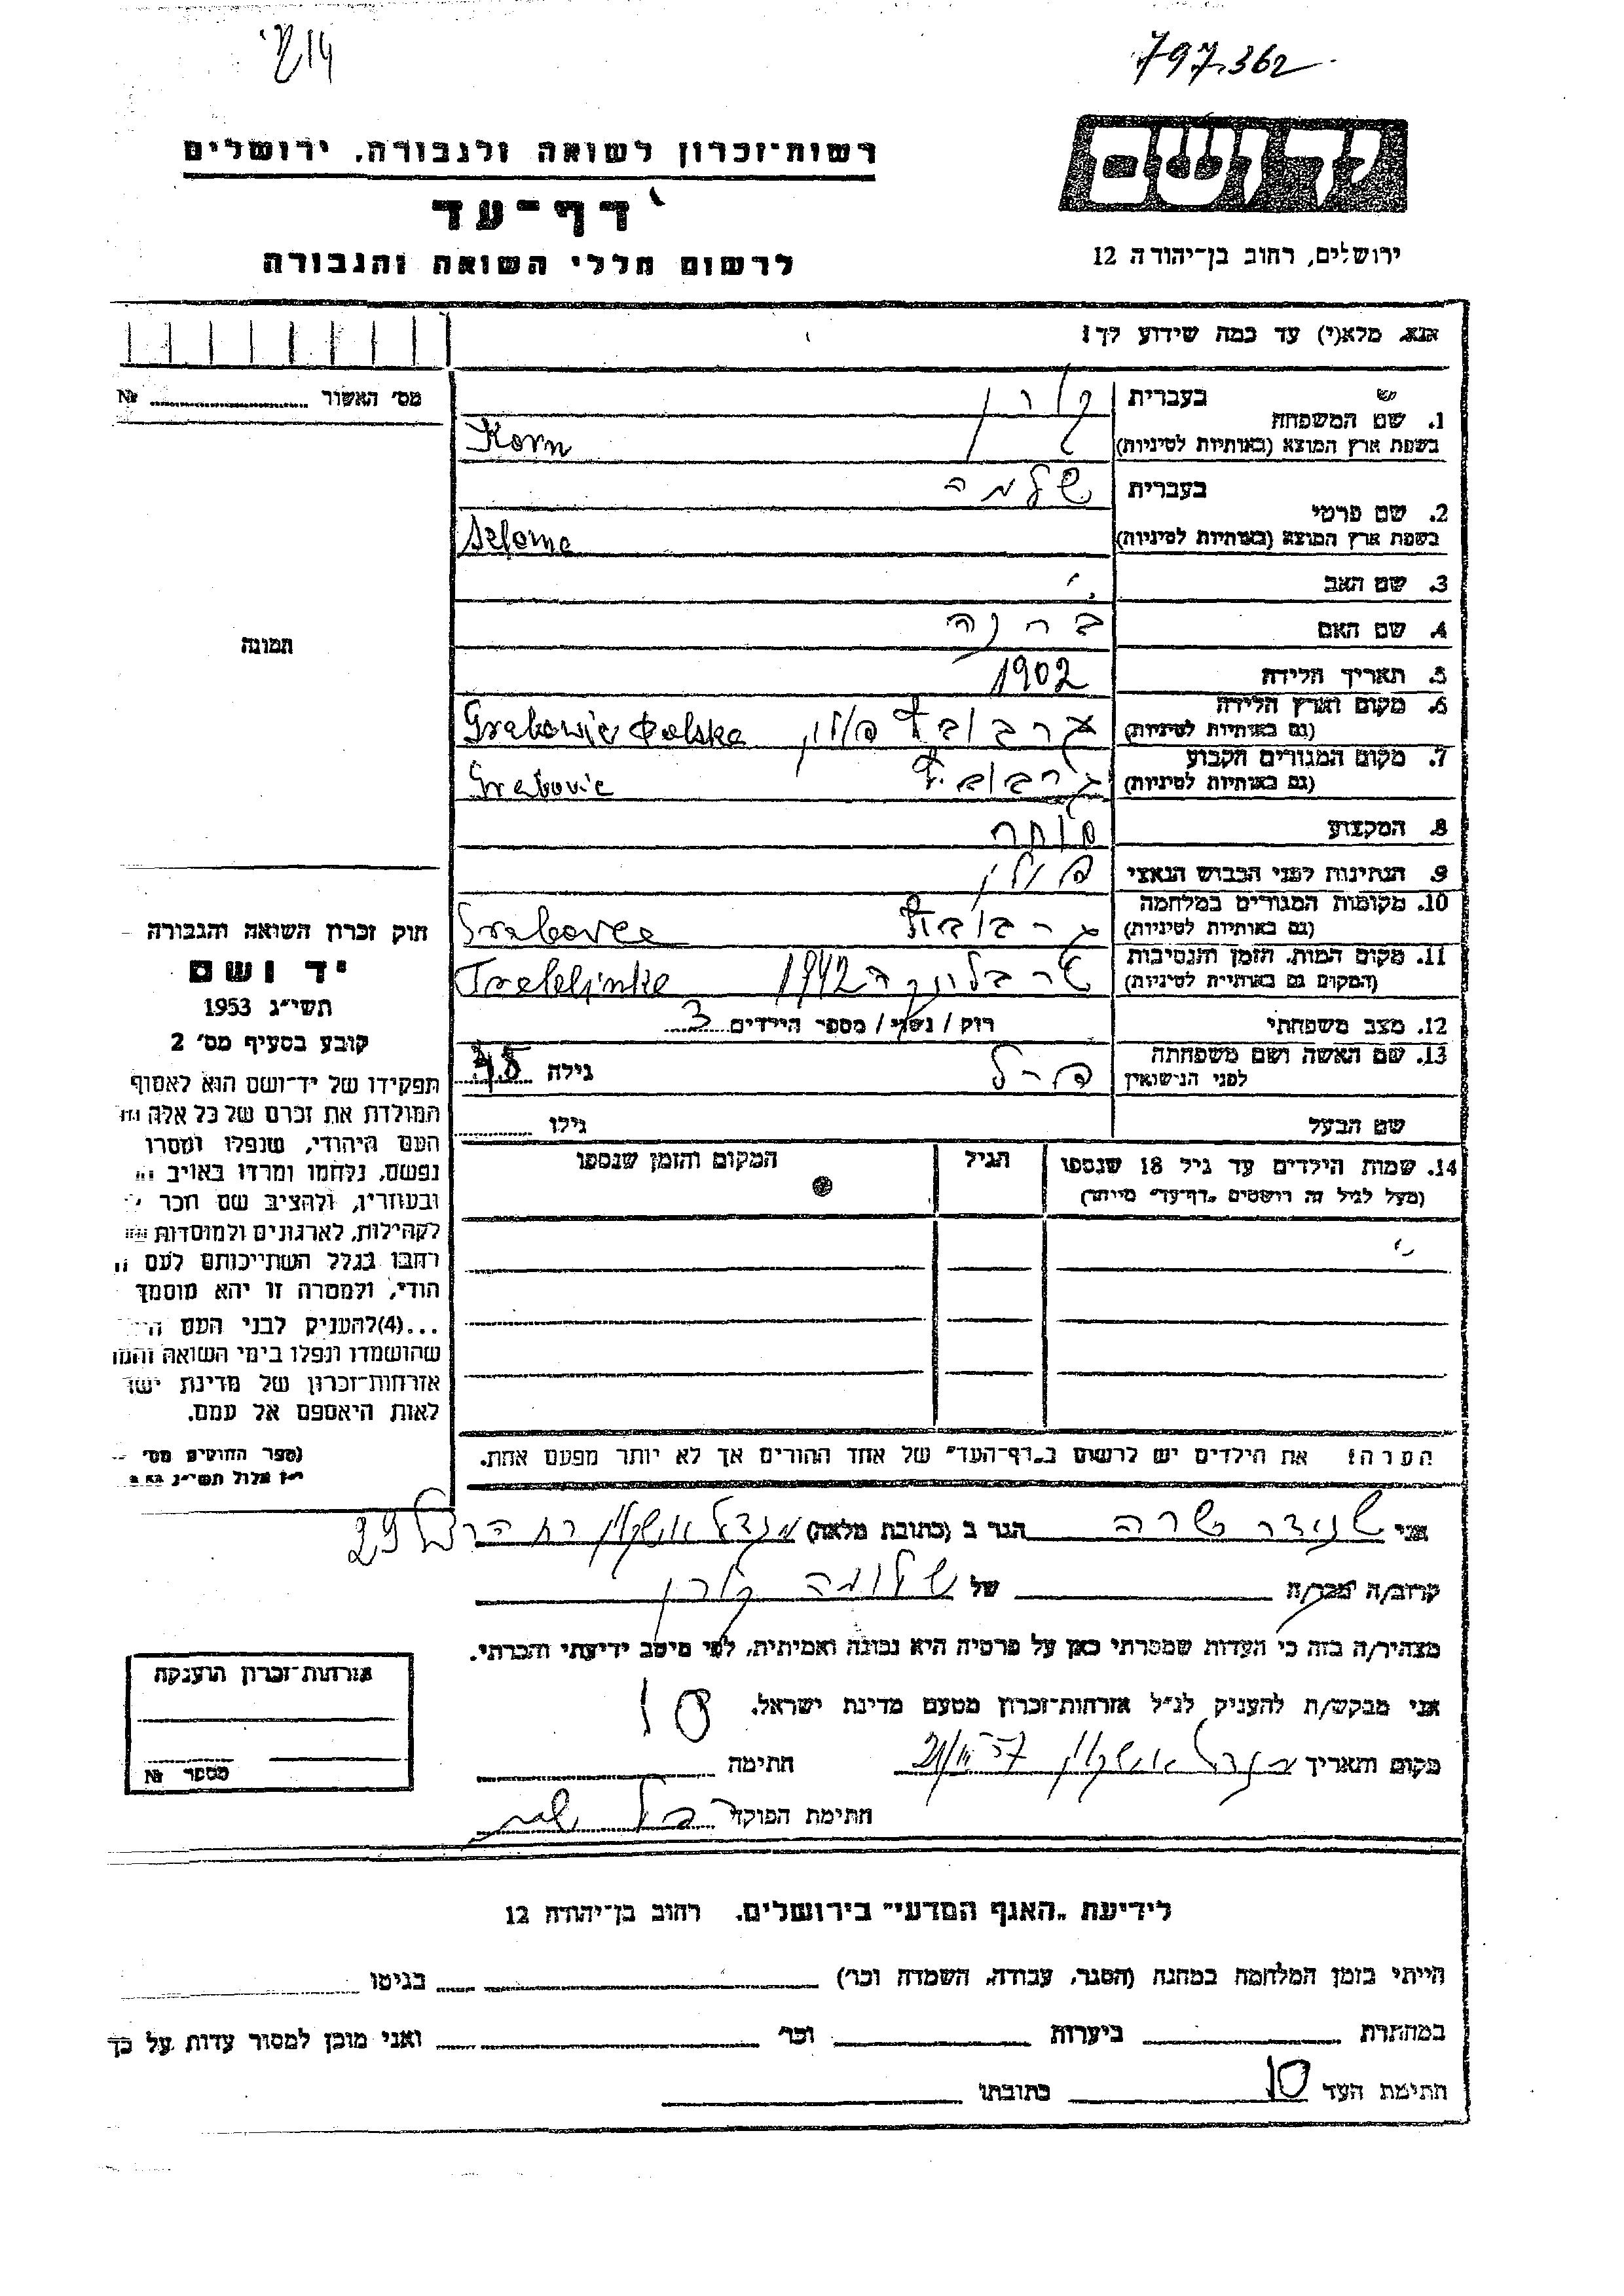 797.362
רשות-זכרון לשואה ולגבורה, ירושלים
יד ושם
דף-עד
לרשום חללי השואה והגבורה
ירושלים, רחוב בן-יהודה 12
אנא, מלא(י) עד כמה שידוע לך!
מס' האשור № 
1. שם המשפחה
בעברית קורן
בשפת ארץ המוצא (באותיות לטיניות) Korn
2. שם פרטי
בעברית שלמה
בשפת ארץ המוצא (באותיות לטיניות) Szloma
3. שם האב
4. שם האם
5. תאריך הלידה 1902
6. מקום וארץ הלידה
(גם באותיות לטיניות) גרבוביץ פולין Grabowic Polska
7. מקום המגורים הקבוע
(גם באותיות לטיניות) גרבוביץ Grabovic
8. המקצוע סוחר
9. הנתינות לפני הכבוש הנאצי פולין
10. מקומות המגורים במלחמה
(גם באותיות לטיניות) גרבוביץ
11. מקום המות, הזמן והנסיבות
(המקום גם באותיות לטיניות) 1942
12. מצב משפחתי רווק / נשוי / מספר הילדים 3
13. שם האשה ושם משפחתה
לפני הנישואין פרל גילה
שם הבעל גילו
14. שמות הילדים עד גיל 18 שנספו הגיל המקום והזמן שנספו
(מעל לגיל זה רושמים "דף-עד" מיוחד)
הערה: את הילדים יש לרשום ב"דף-העד" של אחד ההורים אך לא יותר מפעם אחת.
תמונה
חוק זכרון השואה והגבורה –
יד ושם
תשי"ג 1953
קובע בסעיף מס' 2
תפקידו של יד-ושם הוא לאסוף
המולדת את זכרם של כל אלה
העם היהודי, שנפלו ומסרו
נפשם, נלחמו ומרדו באויב
ובעוזריו, ולהציב שם וזכר
לקהילות, לארגונים ולמוסדות
חרבו בגלל השתייכותם לעם
הודי, ולמטרה זו יהא מוסמך
...(4)להעניק לבני העם
שהושמדו ונפלו בימי השואה
אזרחות-זכרון של מדינת
לאות היאספם אל עמם.
(ספר החוקים מס'
אלול תשי"ג
אני שניידר שרה הגר ב (כתובת מלאה) מגדל אשקלון רח הרצל 29
קרוב/ה מכר/ה של שלומה קורן
מצהיר/ה בזה כי העדות שמסרתי כאן על פרטיה היא נכונה ואמיתית, לפי מיטב ידיעתי והכרתי.
אני מבקש/ת להעניק לנ"ל אזרחות-זכרון מטעם מדינת ישראל.
מקום ותאריך מגדל אשקלון 57 חתימה
חתימת הפוקד
אזרחות-זכרון הוענקה
מספר №
לידיעת "האגף המדעי" בירושלים, רחוב בן-יהודה 12
הייתי בזמן המלחמה במחנה (הסגר, עבודה, השמדה וכו') בגיטו
במחתרת ביערות וכו' ואני מוכן למסור עדות על כך
חתימת העד כתובתו